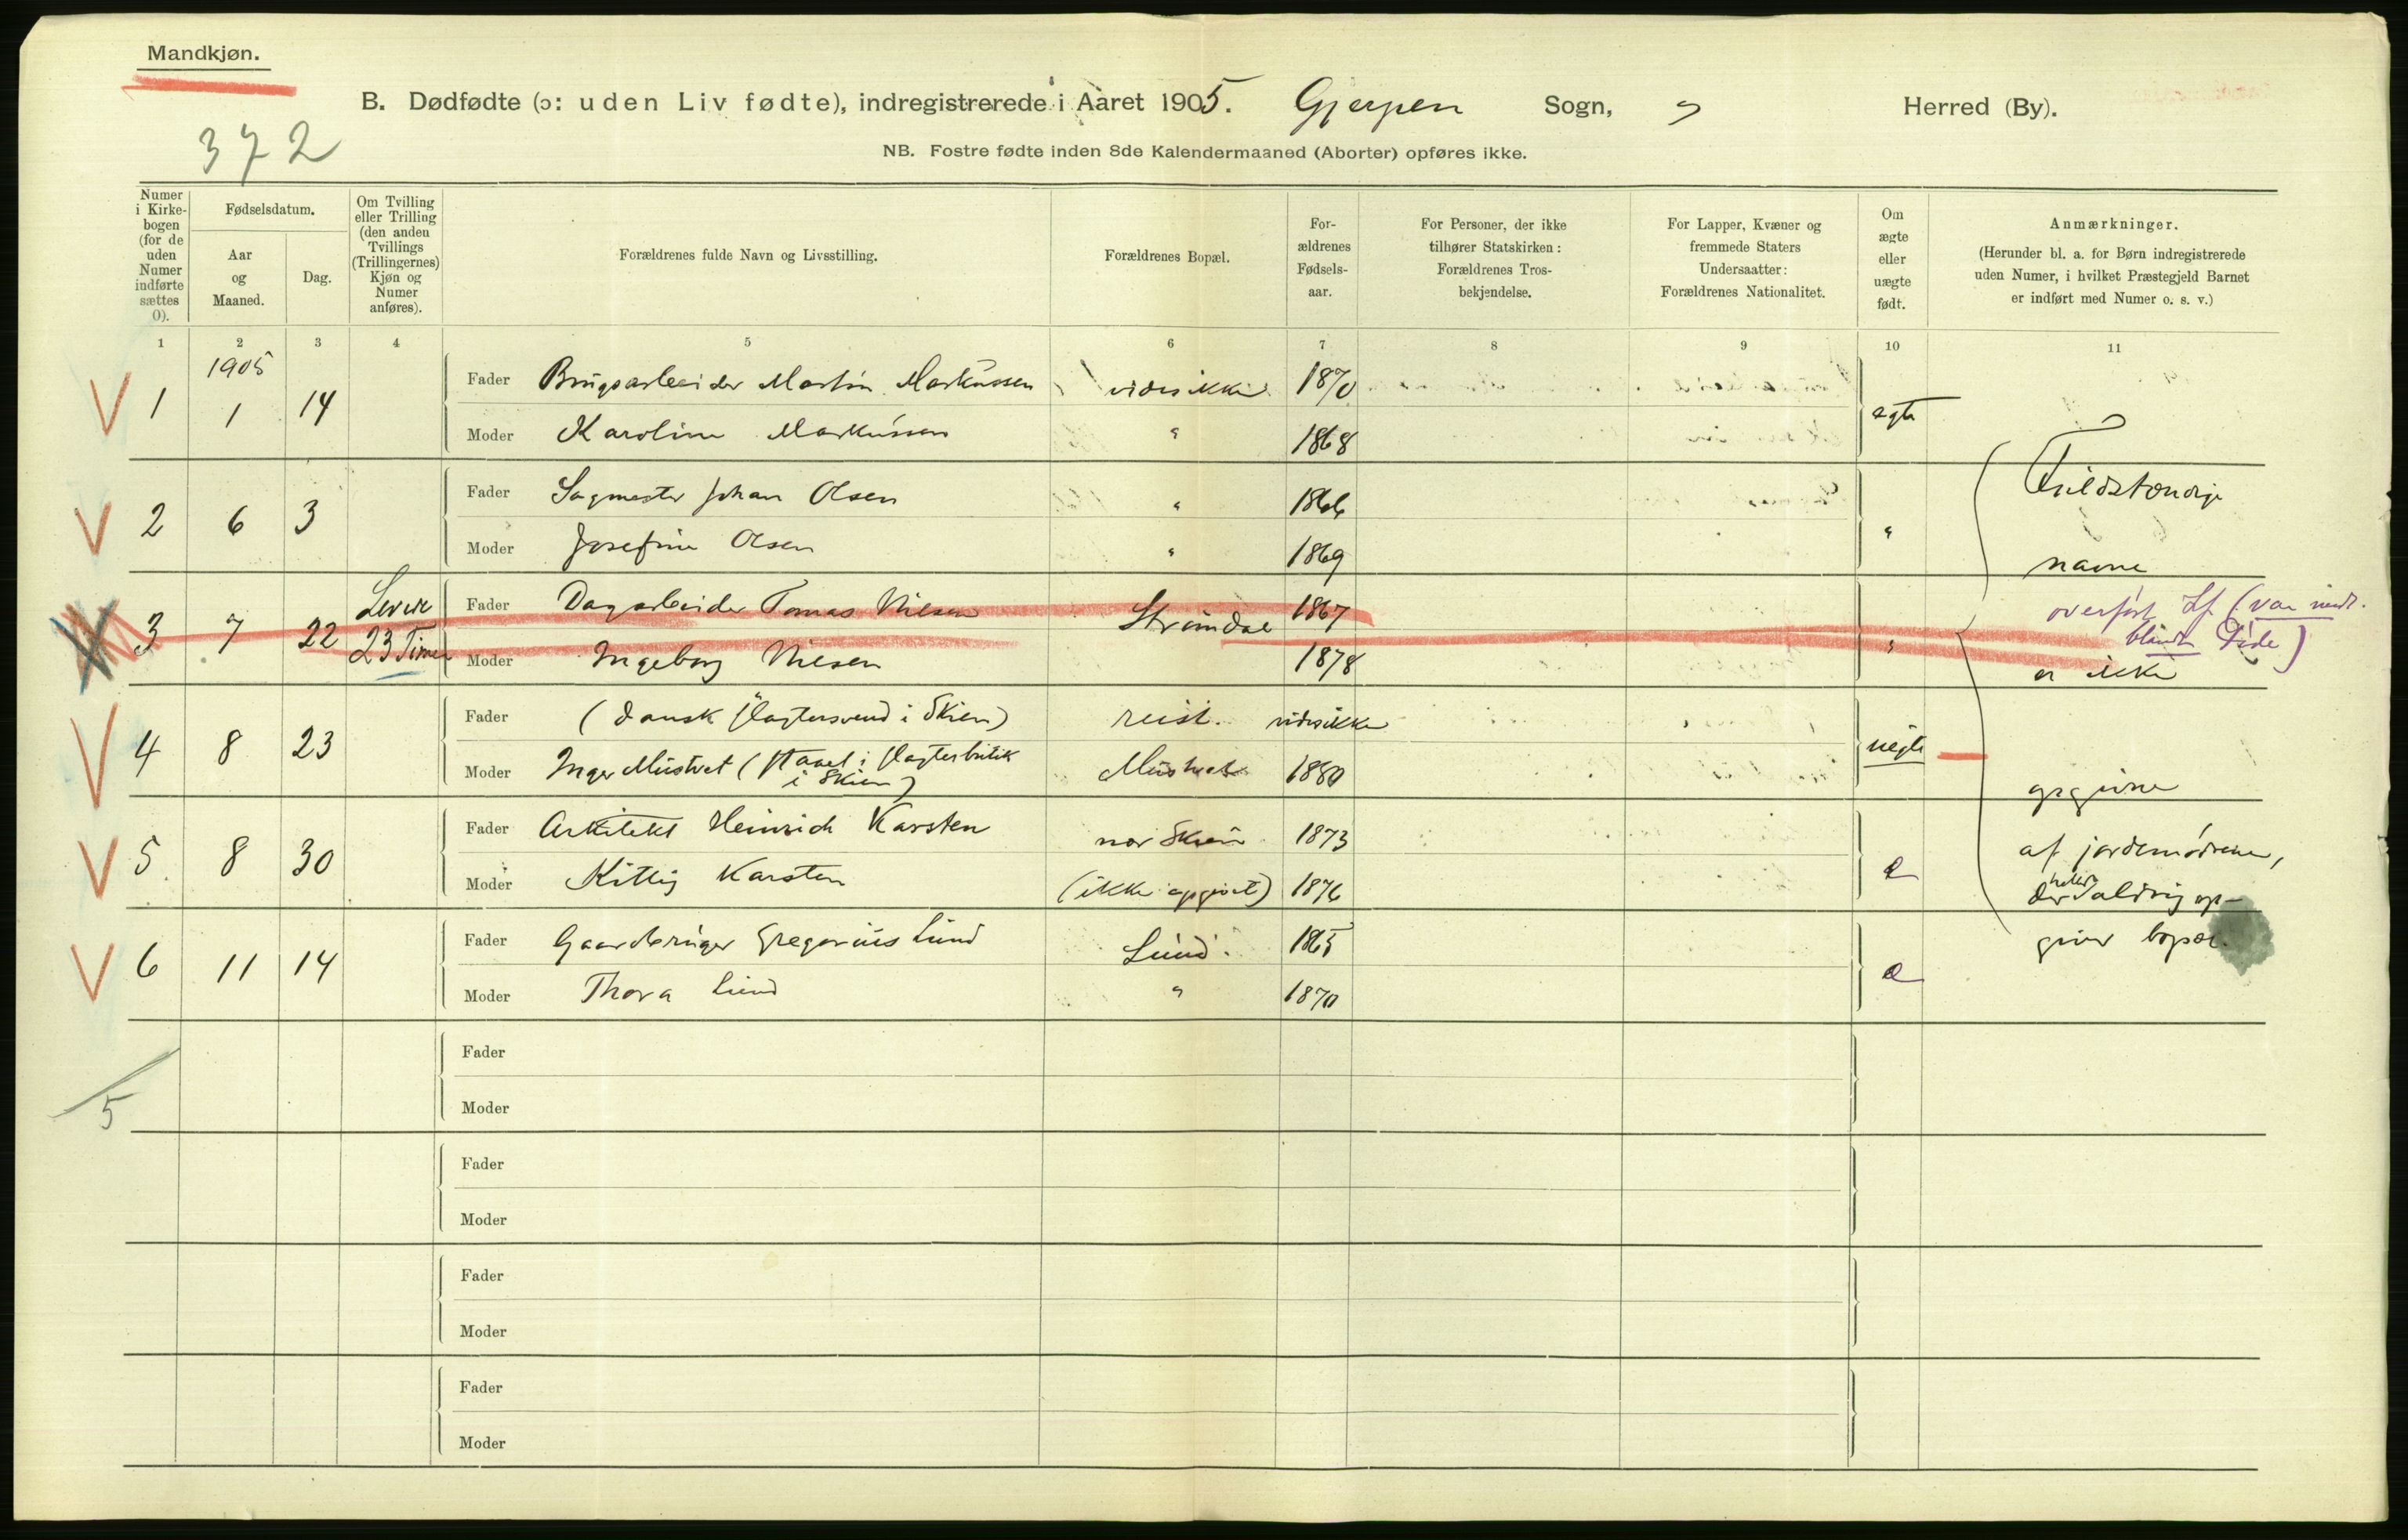 Mandkjøn.
B. Dødfødte (ɔ: uden Liv fødte), indregistrerede i Aaret 1905. Gjerpen Sogn, " Herred (By).
372
NB. Fostre fødte inden 8de Kalendermaaned (Aborter) opføres ikke.
Numer i Kirke-bogen (for de uden Numer indførte sættes 0).
Fødselsdatum.
Aar og Maaned.
Dag.
Om Tvilling eller Trilling (den anden Tvillings (Trillingernes) Kjøn og Numer anføres).
Forældrenes fulde Navn og Livsstilling.
Forældrenes Bopæl.
For-ældrenes Fødsels-aar.
For Personer, der ikke tilhører Statskirken: Forældrenes Tros-bekjendelse.
For Lapper, Kvæner og fremmede Staters Undersaatter: Forældrenes Nationalitet.
Om ægte eller uægte født.
Anmærkninger.
(Herunder bl. a. for Børn indregistrerede uden Numer, i hvilket Præstegjeld Barnet er indført med Numer o. s. v.)
1 2 3 4 5 6 7 8 9 10 11
1905
1 1 14 Fader Brugsarbeider Martin Markussen vides ikke 1870 ægte
Moder Karoline Markussen " 1868
2 6 3 Fader Sagmester Johan Olsen " 1866 "
Moder Josefine Olsen " 1869
Fuldstændige
navne
3 7 22 Levede 23 Timer Fader Dagarbeider Tomas Nilsen Strømdal 1867 "
Moder Ingeborg Nilsen 1878
overført Lf. (var medt.
blandt Døde)
er ikke
4 8 23 Fader (dansk slagtersvend i Skien) reist. vides ikke uægte
Moder Inger Mustvet (staaet i slagterbutik
i Skien) Mustvet 1880
opgivne
5 8 30 Fader Arkitekt Heinrich Karsten nær Skien 1873 æ
Moder Kitty Karsten (ikke opgivet) 1876
af jordemødrene,
der heller aldrig op-
giver bopæl.
6 11 14 Fader Gaardbruger Gregorius Lund Lund. 1865 æ
Moder Thora Lund " 1870
Fader
5
Moder
Fader
Moder
Fader
Moder
Fader
Moder